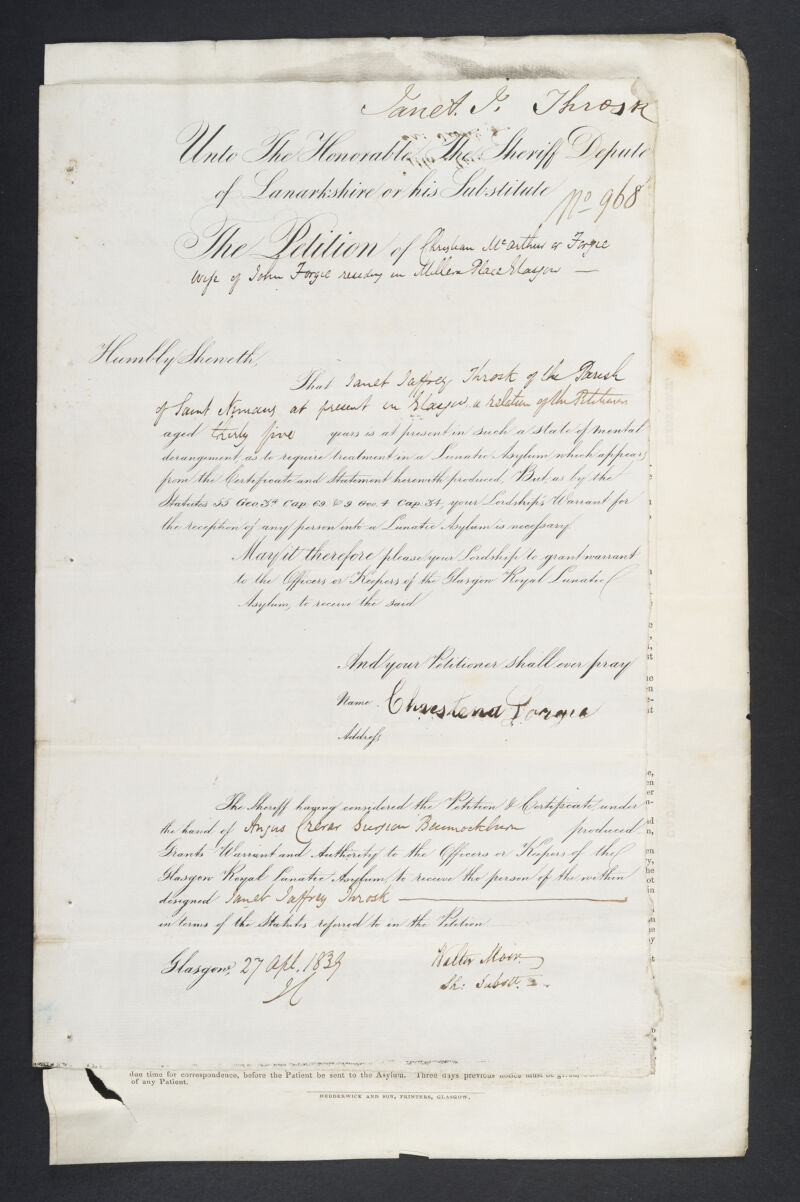 Janet. J. Throsk
Unto The Honorable The Sheriff Depute
of Lanarkshire or his Substitute
No 968
The Petition of Christian McArthur or Forgie
Wife of John Forgie residing in Millers Place Glasgow —
Humbly Sheweth,
That Janet Jaffrey Throsk of the Parish
of Saint Ninians at present in Glasgow a relation of the Petitioner
aged thirty five years is at present in such a state of mental
derangement, as to require treatment in a Lunatic Asylum which appears
from the Certificate and Statement herewith produced. But, as by the
Statutes 55 Geo 3d Cap. 69. & 9 Geo. 4 Cap. 34, your Lordship's Warrant for
the reception of any person into a Lunatic Asylum is necessary
May it therefore please your Lordship to grant warrant
to the Officers or Keepers of the Glasgow Royal Lunatic
Asylum, to receive the said
And your Petitioner shall ever pray
Name Christena Forgie
Address
The Sheriff having considered the Petition & Certificate under
the hand of Angus Crerar Surgeon Bannockburn produced
Grants Warrant and Authority to the Officers or Keepers of the
Glasgow Royal Lunatic Asylum, to receive the person of the within
designed Janet Jaffrey Throsk —
in terms of the Statutes referred to in the Petition
Glasgow, 27 Apl. 1839
Walter Moir
Sh: Subst.
due time for correspondence, before the Patient be sent to the Asylum. Three days previous notice must be given,
of any Patient.
HEDDERWICK AND SON, PRINTERS, GLASGOW.